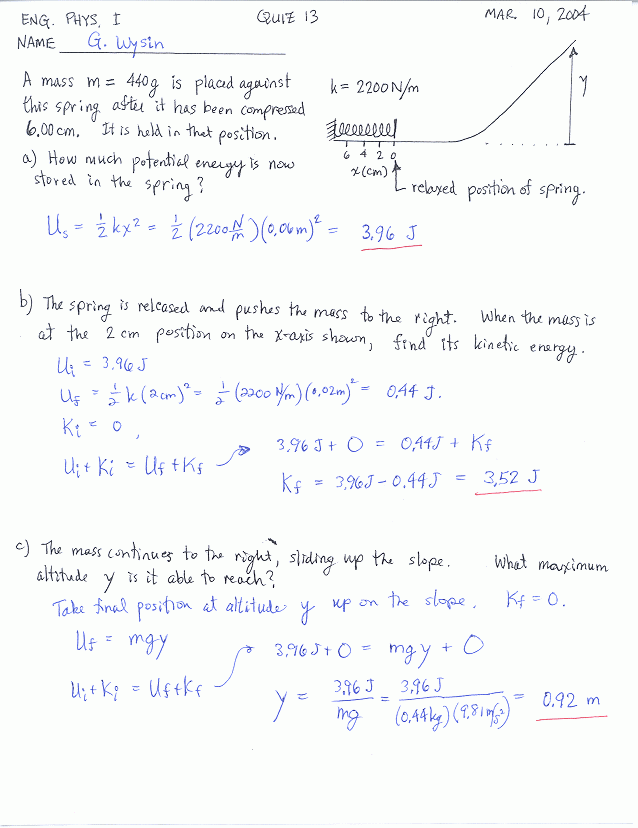 ENG. PHYS. I QUIZ 13 MAR. 10, 2004
NAME G. Wysin
A mass m = 440g is placed against
this spring after it has been compressed
6.00cm. It is held in that position.
a) How much potential energy is now
stored in the spring?
k = 2200 N/m
y
6 4 2 0
x(cm)
relaxed position of spring.
Us = 1/2 kx² = 1/2 (2200 N/m)(0.06m)² = 3.96 J
b) The spring is released and pushes the mass to the right. When the mass is
at the 2 cm position on the x-axis shown, find its kinetic energy.
Ui = 3.96 J
Uf = 1/2 k(2cm)² = 1/2 (2200 N/m)(0.02m)² = 0.44 J.
Ki = 0,
Ui + Ki = Uf + Kf
3.96 J + 0 = 0.44J + Kf
Kf = 3.96J - 0.44J = 3.52 J
c) The mass continues to the right, sliding up the slope. What maximum
altitude y is it able to reach?
Take final position at altitude y up on the slope. Kf = 0.
Uf = mgy
Ui + Ki = Uf + Kf
3.96 J + 0 = mgy + 0
y = 3.96 J / mg = 3.96 J / (0.44kg)(9.81 m/s²) = 0.92 m